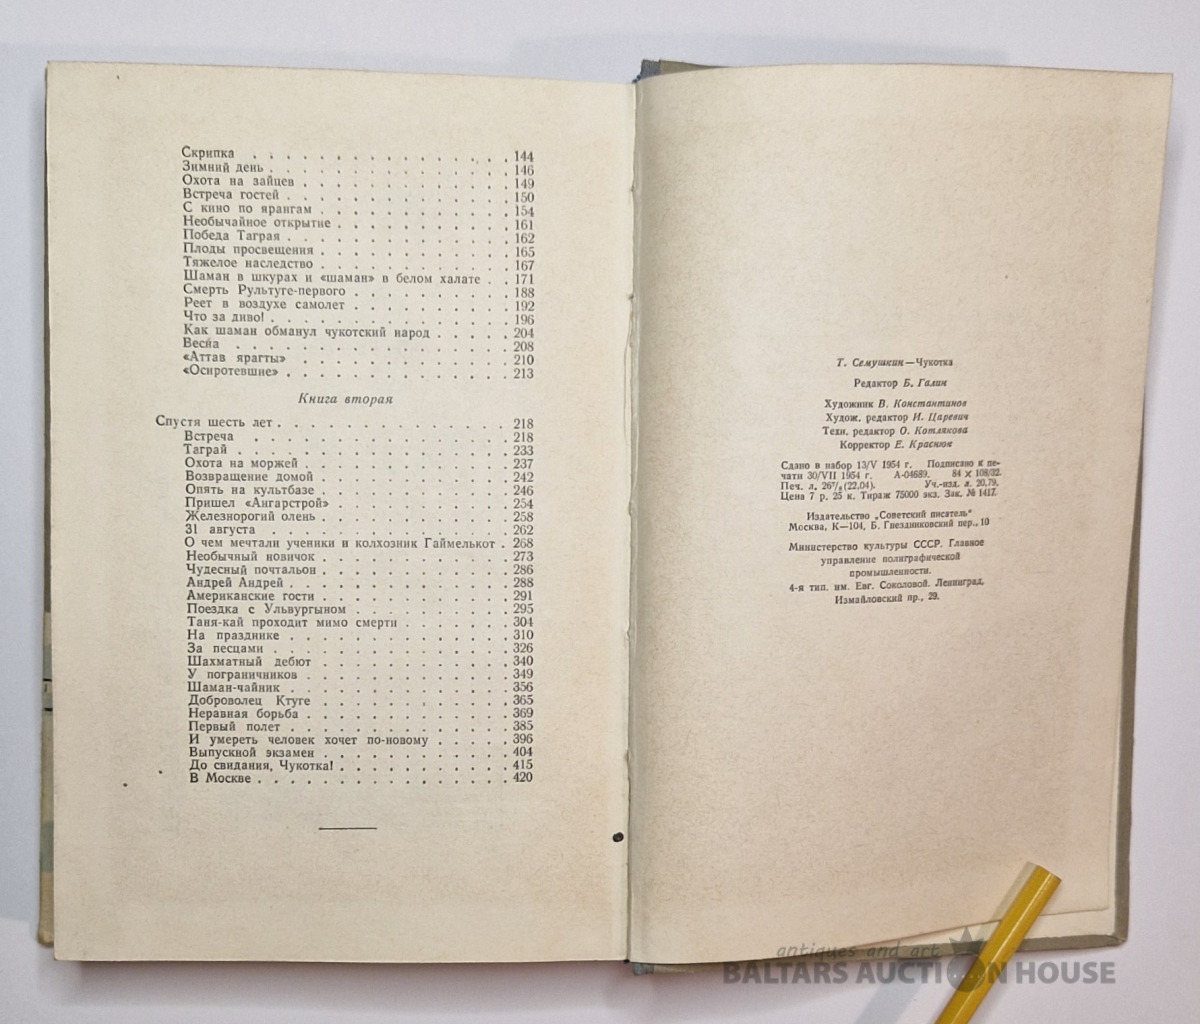 Скрипка . . . . . . . . . . . . . . 144
Зимний день . . . . . . . . . . . . . 146
Охота на зайцев . . . . . . . . . . . 149
Встреча гостей . . . . . . . . . . . . 150
С кино по ярангам . . . . . . . . . . 154
Необычайное открытие . . . . . . . . . 161
Победа Таграя . . . . . . . . . . . . 162
Плоды просвещения . . . . . . . . . . 165
Тяжелое наследство . . . . . . . . . . 167
Шаман в шкурах и «шаман» в белом халате . . 171
Смерть Рультуге-первого . . . . . . . . 188
Реет в воздухе самолет . . . . . . . . 192
Что за диво! . . . . . . . . . . . . . 196
Как шаман обманул чукотский народ . . . . 204
Весна . . . . . . . . . . . . . . . 208
«Аттав ярагты» . . . . . . . . . . . . 210
«Осиротевшие» . . . . . . . . . . . . 213
Книга вторая
Спустя шесть лет . . . . . . . . . . . . 218
Встреча . . . . . . . . . . . . . . 218
Таграй . . . . . . . . . . . . . . . 233
Охота на моржей . . . . . . . . . . . 237
Возвращение домой . . . . . . . . . . 242
Опять на культбазе . . . . . . . . . . 246
Пришел «Ангарстрой» . . . . . . . . . 254
Железнорогий олень . . . . . . . . . . 258
31 августа . . . . . . . . . . . . . 262
О чем мечтали ученики и колхозник Гаймелькот . 268
Необычный новичок . . . . . . . . . . 273
Чудесный почтальон . . . . . . . . . . 286
Андрей Андрей . . . . . . . . . . . . 288
Американские гости . . . . . . . . . . 291
Поездка с Ульвургыном . . . . . . . . 295
Таня-кай проходит мимо смерти . . . . . . 304
На празднике . . . . . . . . . . . . 310
За песцами . . . . . . . . . . . . . 326
Шахматный дебют . . . . . . . . . . . 340
У пограничников . . . . . . . . . . . 349
Шаман-чайник . . . . . . . . . . . . 356
Доброволец Ктуге . . . . . . . . . . 365
Неравная борьба . . . . . . . . . . . 369
Первый полет . . . . . . . . . . . . 385
И умереть человек хочет по-новому . . . . . 396
Выпускной экзамен . . . . . . . . . . 404
До свидания, Чукотка! . . . . . . . . . 415
В Москве . . . . . . . . . . . . . . 420
Т. Семушкин—Чукотка
Редактор Б. Галин
Художник В. Константинов
Худож. редактор И. Царевич
Техн. редактор О. Котлякова
Корректор Е. Краснюк
Сдано в набор 13/V 1954 г. Подписано к пе-
чати 30/VII 1954 г. А-04689. 84 × 108/32.
Печ. л. 26⁷/₈ (22,04). Уч.-изд. л. 20,79.
Цена 7 р. 25 к. Тираж 75000 экз. Зак. № 1417.
Издательство „Советский писатель"
Москва, К—104, Б. Гнездниковский пер., 10
Министерство культуры СССР. Главное
управление полиграфической
промышленности.
4-я тип. им. Евг. Соколовой. Ленинград,
Измайловский пр., 29.
antiques and art
BALTARS AUCTION HOUSE